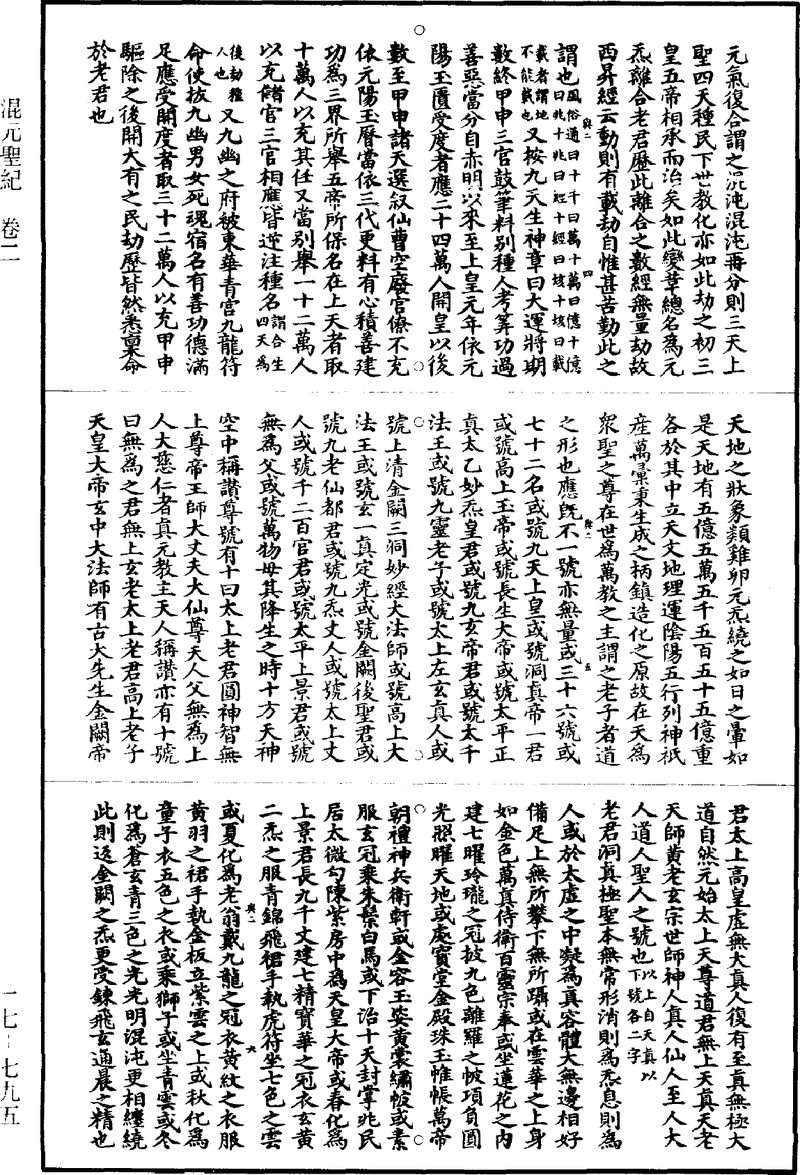 混元聖紀　卷二
一七－七九五
元氣復合謂之混沌混沌再分則三天上
聖四天種民下世教化亦如此劫之初三
皇五帝相承而治矣如此變章總名爲元
炁離合老君歷此離合之數經無量劫故
西昇經云動則有載劫自惟甚苦勤此之
謂也風俗通曰十千曰萬十萬曰億十億
曰兆十兆曰經十經曰垓十垓曰載
載者謂地
不能載也又按九天生神章曰大運將期
數終甲申三官鼓筆料別種人考筭功過
善惡當分自赤明以來至上皇元年依元
陽玉匱受度者應二十四萬人開皇以後
數至甲申諸天選敘仙曹空廢官僚不充
依元陽玉曆當依三代更料有心積善建
功爲三界所舉五帝所保名在上天者取
十萬人以充其任又當別舉一十二萬人
以充儲官三官相應皆逆注種名謂合生
四天爲
後劫種
人也又九幽之府被東華青宮九龍符
命使拔九幽男女死魂宿名有善功德滿
足應受開度者取三十二萬人以充甲申
驅除之後開大有之民劫歷皆然悉稟命
於老君也
天地之狀象類雞卵元炁繞之如日之暈如
是天地有五億五萬五千五百五十五億重
各於其中立天文地理運陰陽五行列神祇
産萬彙秉生成之柄鎮造化之原故在天爲
衆聖之尊在世爲萬教之主謂之老子者道
之形也應旣不一號亦無量或三十六號或
七十二名或號九天上皇或號洞真帝一君
或號高上玉帝或號長生大帝或號太平正
真太乙妙炁皇君或號九玄帝君或號太千
法王或號九靈老子或號太上左玄真人或
號上清金闕三洞妙經大法師或號高上大
法王或號玄一真定光或號金闕後聖君或
號九老仙都君或號九炁丈人或號太上丈
人或號千二百官君或號太平上景君或號
無爲父或號萬物母其降生之時十方天神
空中稱讚尊號有十曰太上老君圓神智無
上尊帝王師大丈夫大仙尊天人父無爲上
人大慈仁者真元教主天人稱讚亦有十號
曰無爲之君無上玄老太上老君高上老子
天皇大帝玄中大法師有古大先生金闕帝
君太上高皇虛無大真人復有至真無極大
道自然元始太上天尊道君無上天真天老
天師黃老玄宗世師神人真人仙人至人大
人道人聖人之號也以上自天真以
下號各二字
老君洞真極聖本無常形消則爲炁息則爲
人或於太虛之中凝爲真容體大無邊相好
備足上無所攀下無所躡或在雲華之上身
如金色萬真侍衛百靈宗奉或坐蓮花之内
建七曜玲瓏之冠披九色離羅之帔項負圓
光照曜天地或處寶堂金殿珠玉帷帳萬帝
朝禮神兵衛軒或金容玉姿黃裳繡帔或素
服玄冠乘朱鬃白馬或下治十天封掌兆民
居太微勾陳紫房中爲天皇大帝或春化爲
上景君長九千丈建七精寶華之冠衣玄黃
二炁之服青錦飛裙手執虎符坐七色之雲
或夏化爲老翁戴九龍之冠衣黃紋之衣服
黃羽之裙手執金板立紫雲之上或秋化爲
童子衣五色之衣或乘獅子或坐青雲或冬
化爲蒼玄青三色之光光明混沌更相纏繞
此則返金闕之炁更受鍊飛玄通晨之精也